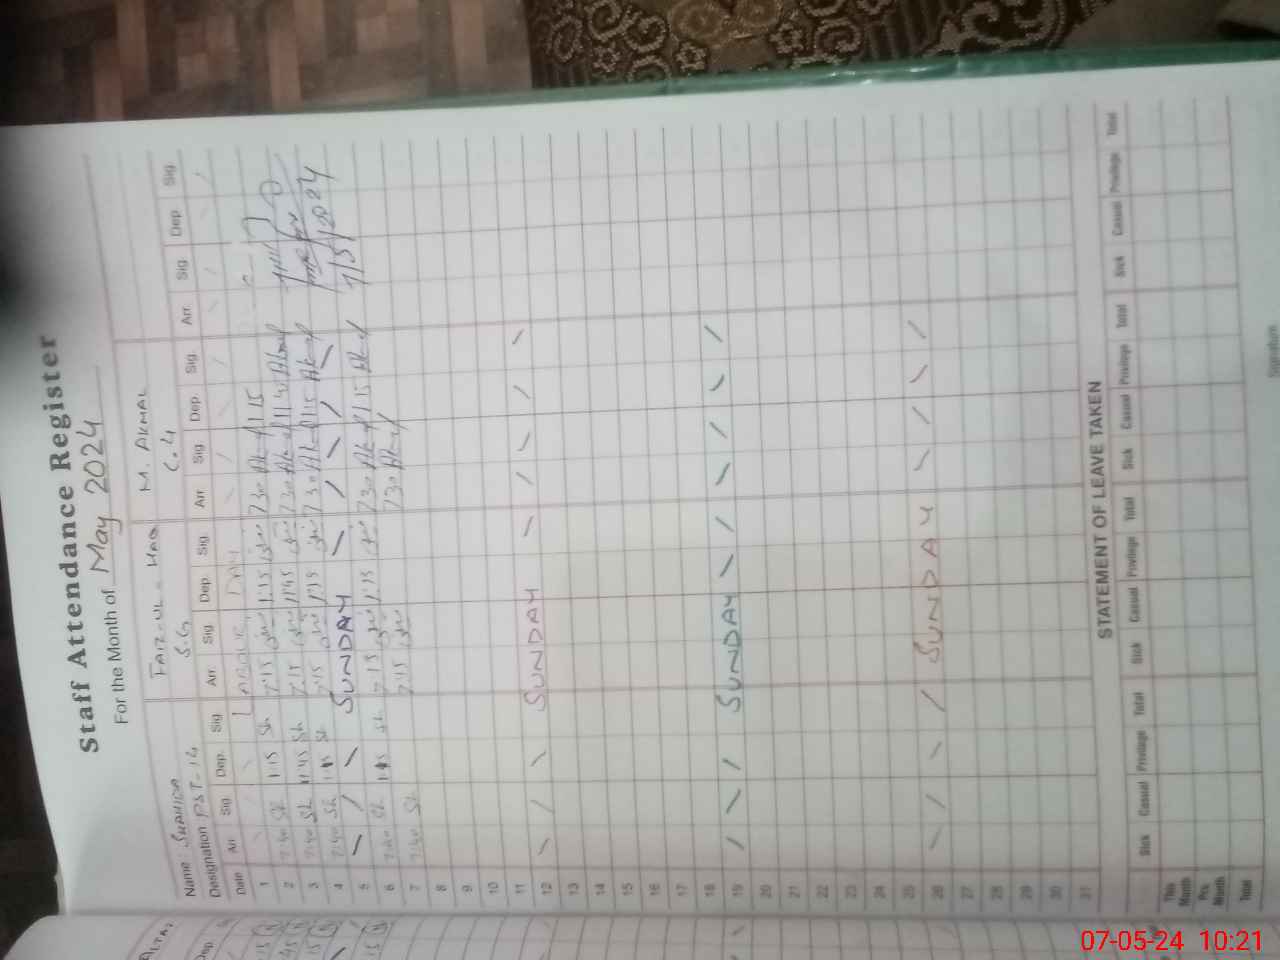 Staff Attendance Register
For the Month of May 2024
Name: SHAHIDA FAIZ-UL-HAQ M. AKMAL
Designation PST-14 S.G C.4
Date Arr Sig Dep. Sig Arr. Sig Dep. Sig Arr Sig Dep. Sig. Arr. Sig Dep Sig
1 LABOUR DAY
2 7:40 Sh 1:15 Sh 7:15 1:15 7 30 1 15
3 7:40 Sh 11:45 Sh 7:15 11:45 7 30 11 45
4 7:40 Sh 1:15 Sh 7:15 1:15 7 30 1 15
5 SUNDAY
6 7:40 Sh 1:15 Sh 7:15 1:15 7 30 1 15
7 7:40 Sh 7:15 7 30
7/5/2024
8
9
10
11
12 SUNDAY
13
14
15
16
17
18
19 SUNDAY
20
21
22
23
24
25
26 SUNDAY
27
28
29
30
31
STATEMENT OF LEAVE TAKEN
Sick Casual Privilege Total Sick Casual Privilege Total Sick Casual Privilege Total Sick Casual Privilege Total
This Month
Pre. Month
Total
Signature
ALTA
Dep.
07-05-24 10:21